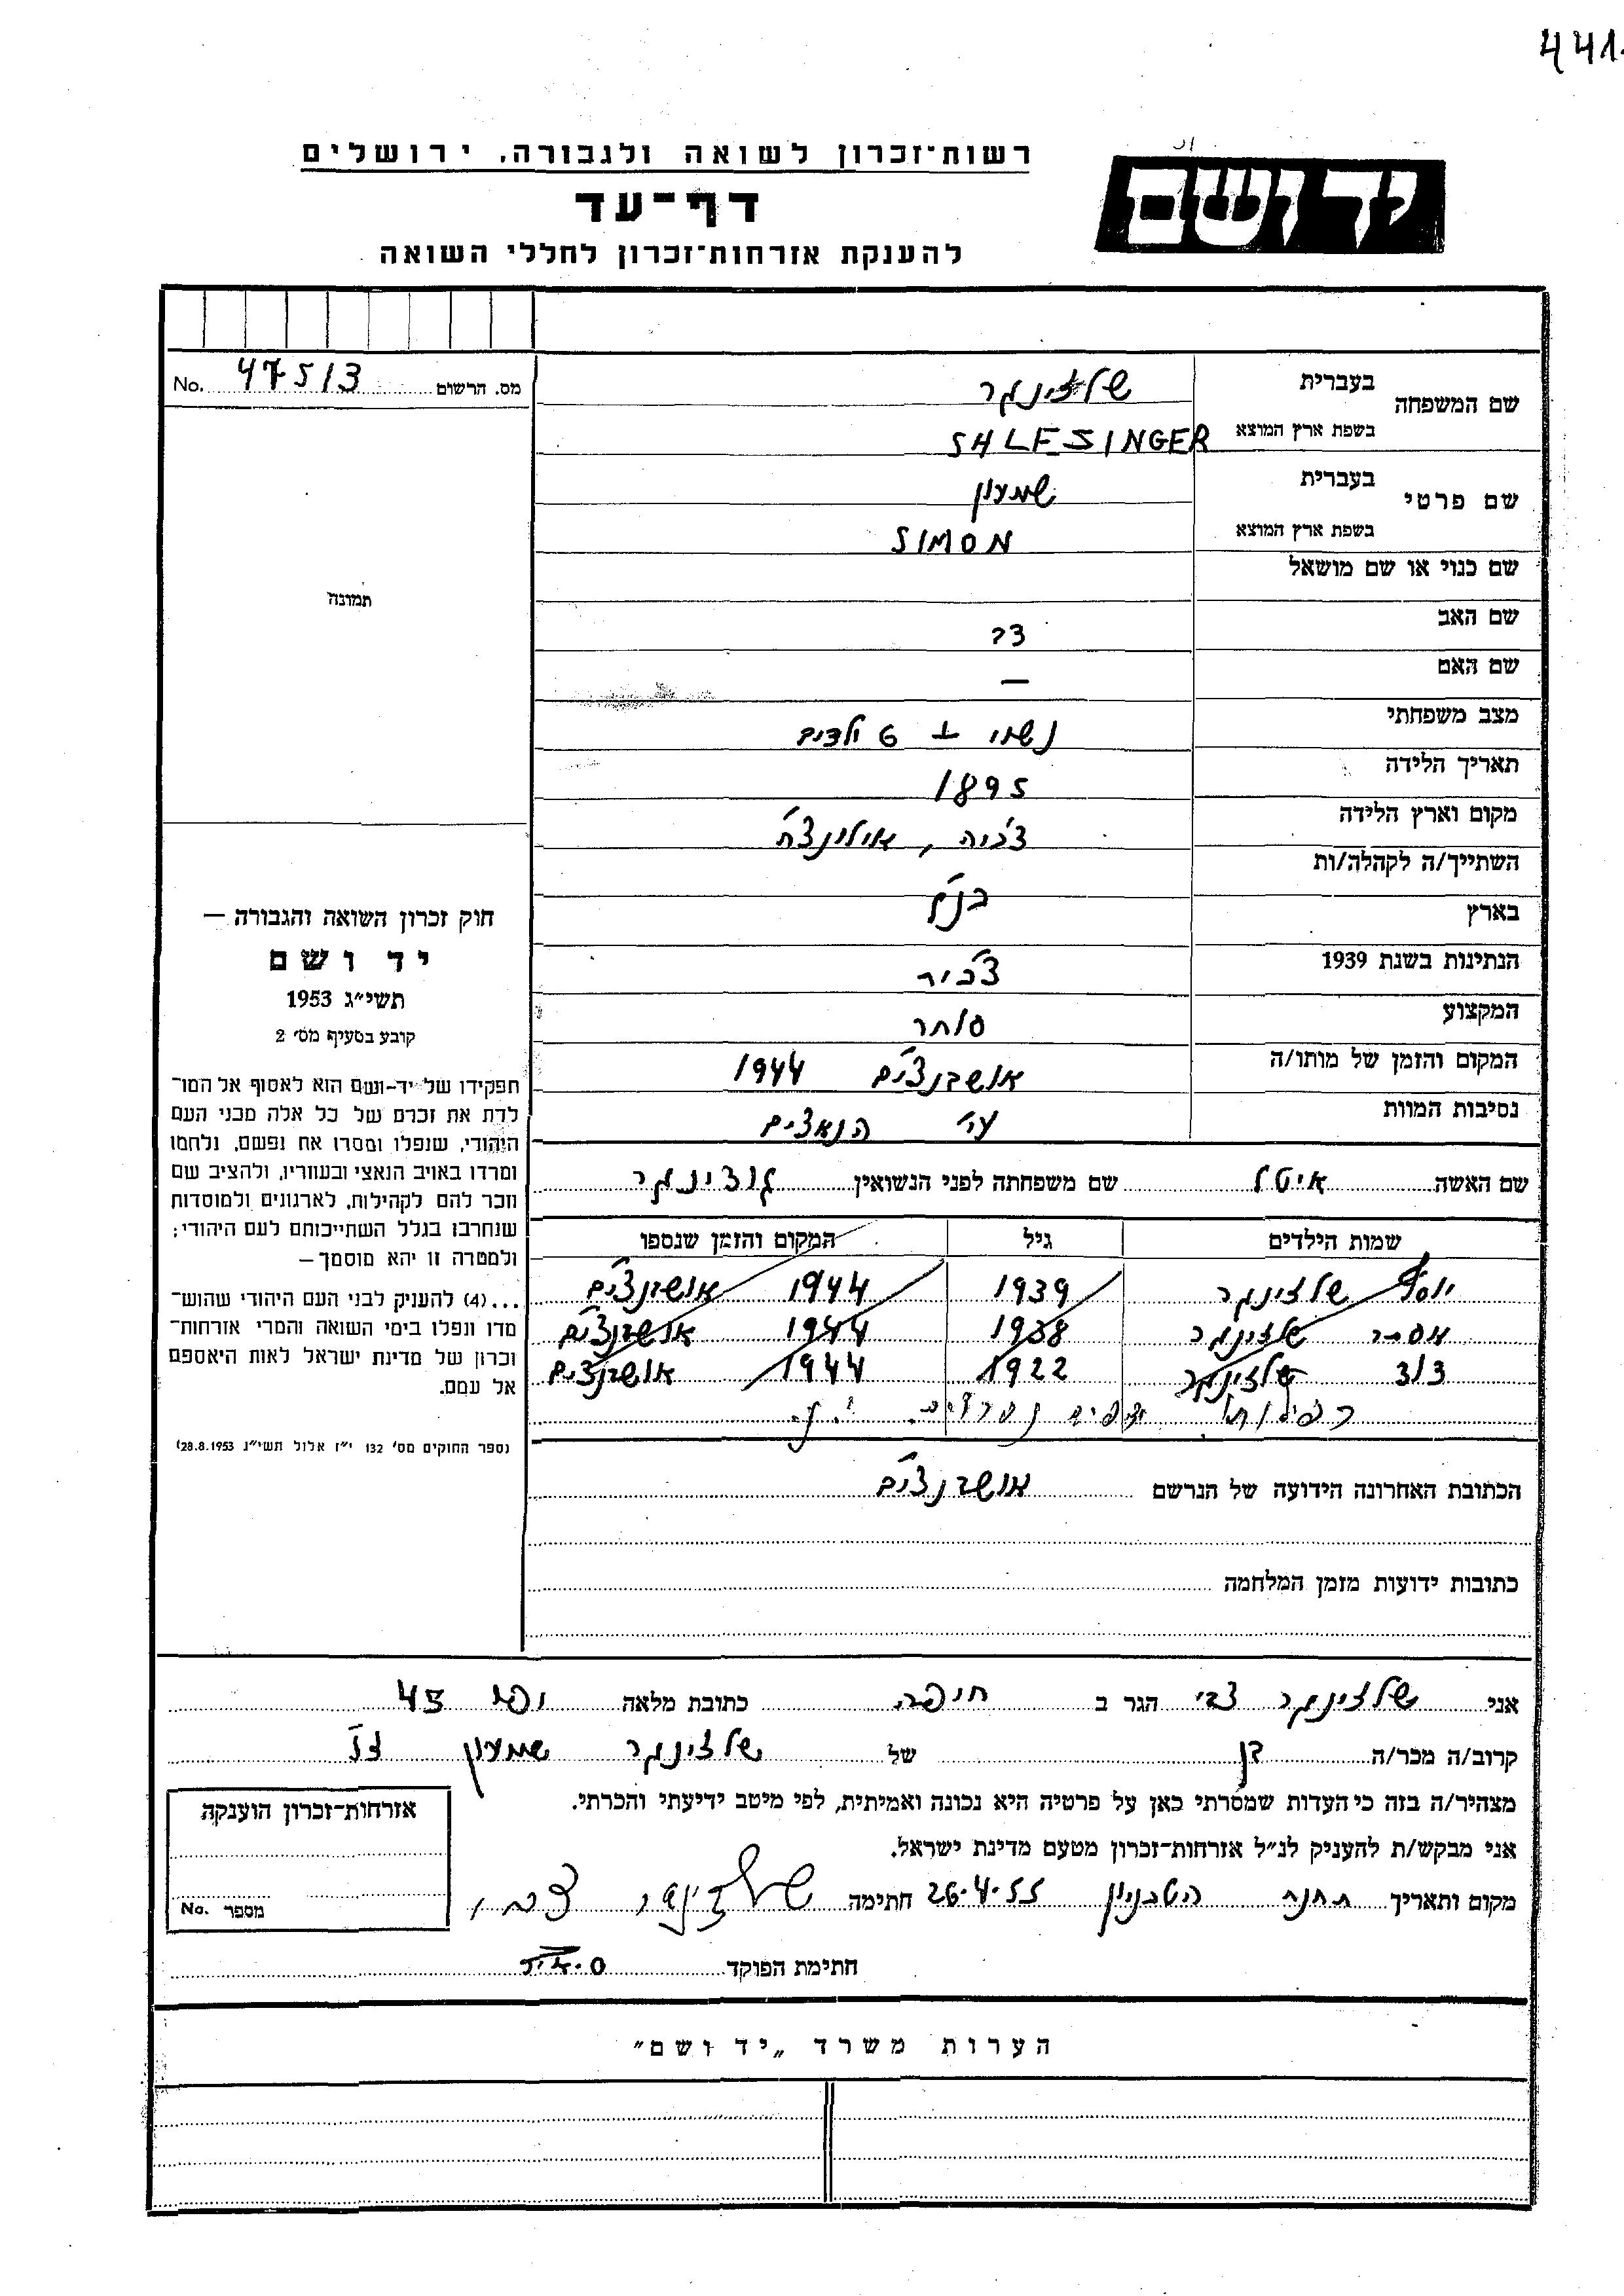 441
רשות־זכרון לשואה ולגבורה, ירושלים
יד ושם
דף־עד
להענקת אזרחות־זכרון לחללי השואה
מס. הרשום 47513 No.
שם המשפחה
בעברית שלזינגר
בשפת ארץ המוצא SHLESINGER
שם פרטי
בעברית שמעון
בשפת ארץ המוצא SIMON
שם כנוי או שם מושאל
שם האב
שם האם —
מצב משפחתי נשוי + 6 ילדים
תאריך הלידה 1895
מקום וארץ הלידה
השתייך/ה לקהלה/ות
בארץ כנ״ל
הנתינות בשנת 1939
המקצוע סוחר
המקום והזמן של מותו/ה אושבנצ׳ים 1944
נסיבות המוות ע״י הנאצים
תמונה
חוק זכרון השואה והגבורה —
יד ושם
תשי״ג 1953
קובע בסעיף מס׳ 2
תפקידו של יד-ושם הוא לאסוף אל המו־
לדת את זכרם של כל אלה מבני העם
היהודי, שנפלו ומסרו את נפשם, נלחמו
ומרדו באויב הנאצי ובעוזריו, ולהציב שם
וזכר להם לקהילות, לארגונים ולמוסדות
שנחרבו בגלל השתייכותם לעם היהודי;
ולמטרה זו יהא מוסמך —
...(4) להעניק לבני העם היהודי שהוש־
מדו ונפלו בימי השואה והמרי אזרחות־
זכרון של מדינת ישראל לאות היאספם
אל עמם.
(ספר החוקים מס׳ 132 י״ז אלול תשי״ג 28.8.1953)
שם האשה איטל שם משפחתה לפני הנשואין
שמות הילדים גיל המקום והזמן שנספו
יוסף שלזינגר 1939 1944 אושבנצ׳ים
אסתר שלזינגר 1938 1944 אושבנצ׳ים
שלזינגר 1922 1944 אושבנצ׳ים
הכתובת האחרונה הידועה של הנרשם אושבנצ׳ים
כתובות ידועות מזמן המלחמה
אני שלזינגר צבי הגר ב חיפה כתובת מלאה 45
קרוב/ה מכר/ה בן של שלזינגר שמעון ז״ל
מצהיר/ה בזה כי העדות שמסרתי כאן על פרטיה היא נכונה ואמיתית, לפי מיטב ידיעתי והכרתי.
אני מבקש/ת להעניק לנ״ל אזרחות־זכרון מטעם מדינת ישראל.
מקום ותאריך תחנת 26.4.55 חתימה שלזינגר צבי
חתימת הפוקד
אזרחות־זכרון הוענקה
מספר No.
הערות משרד „יד ושם״